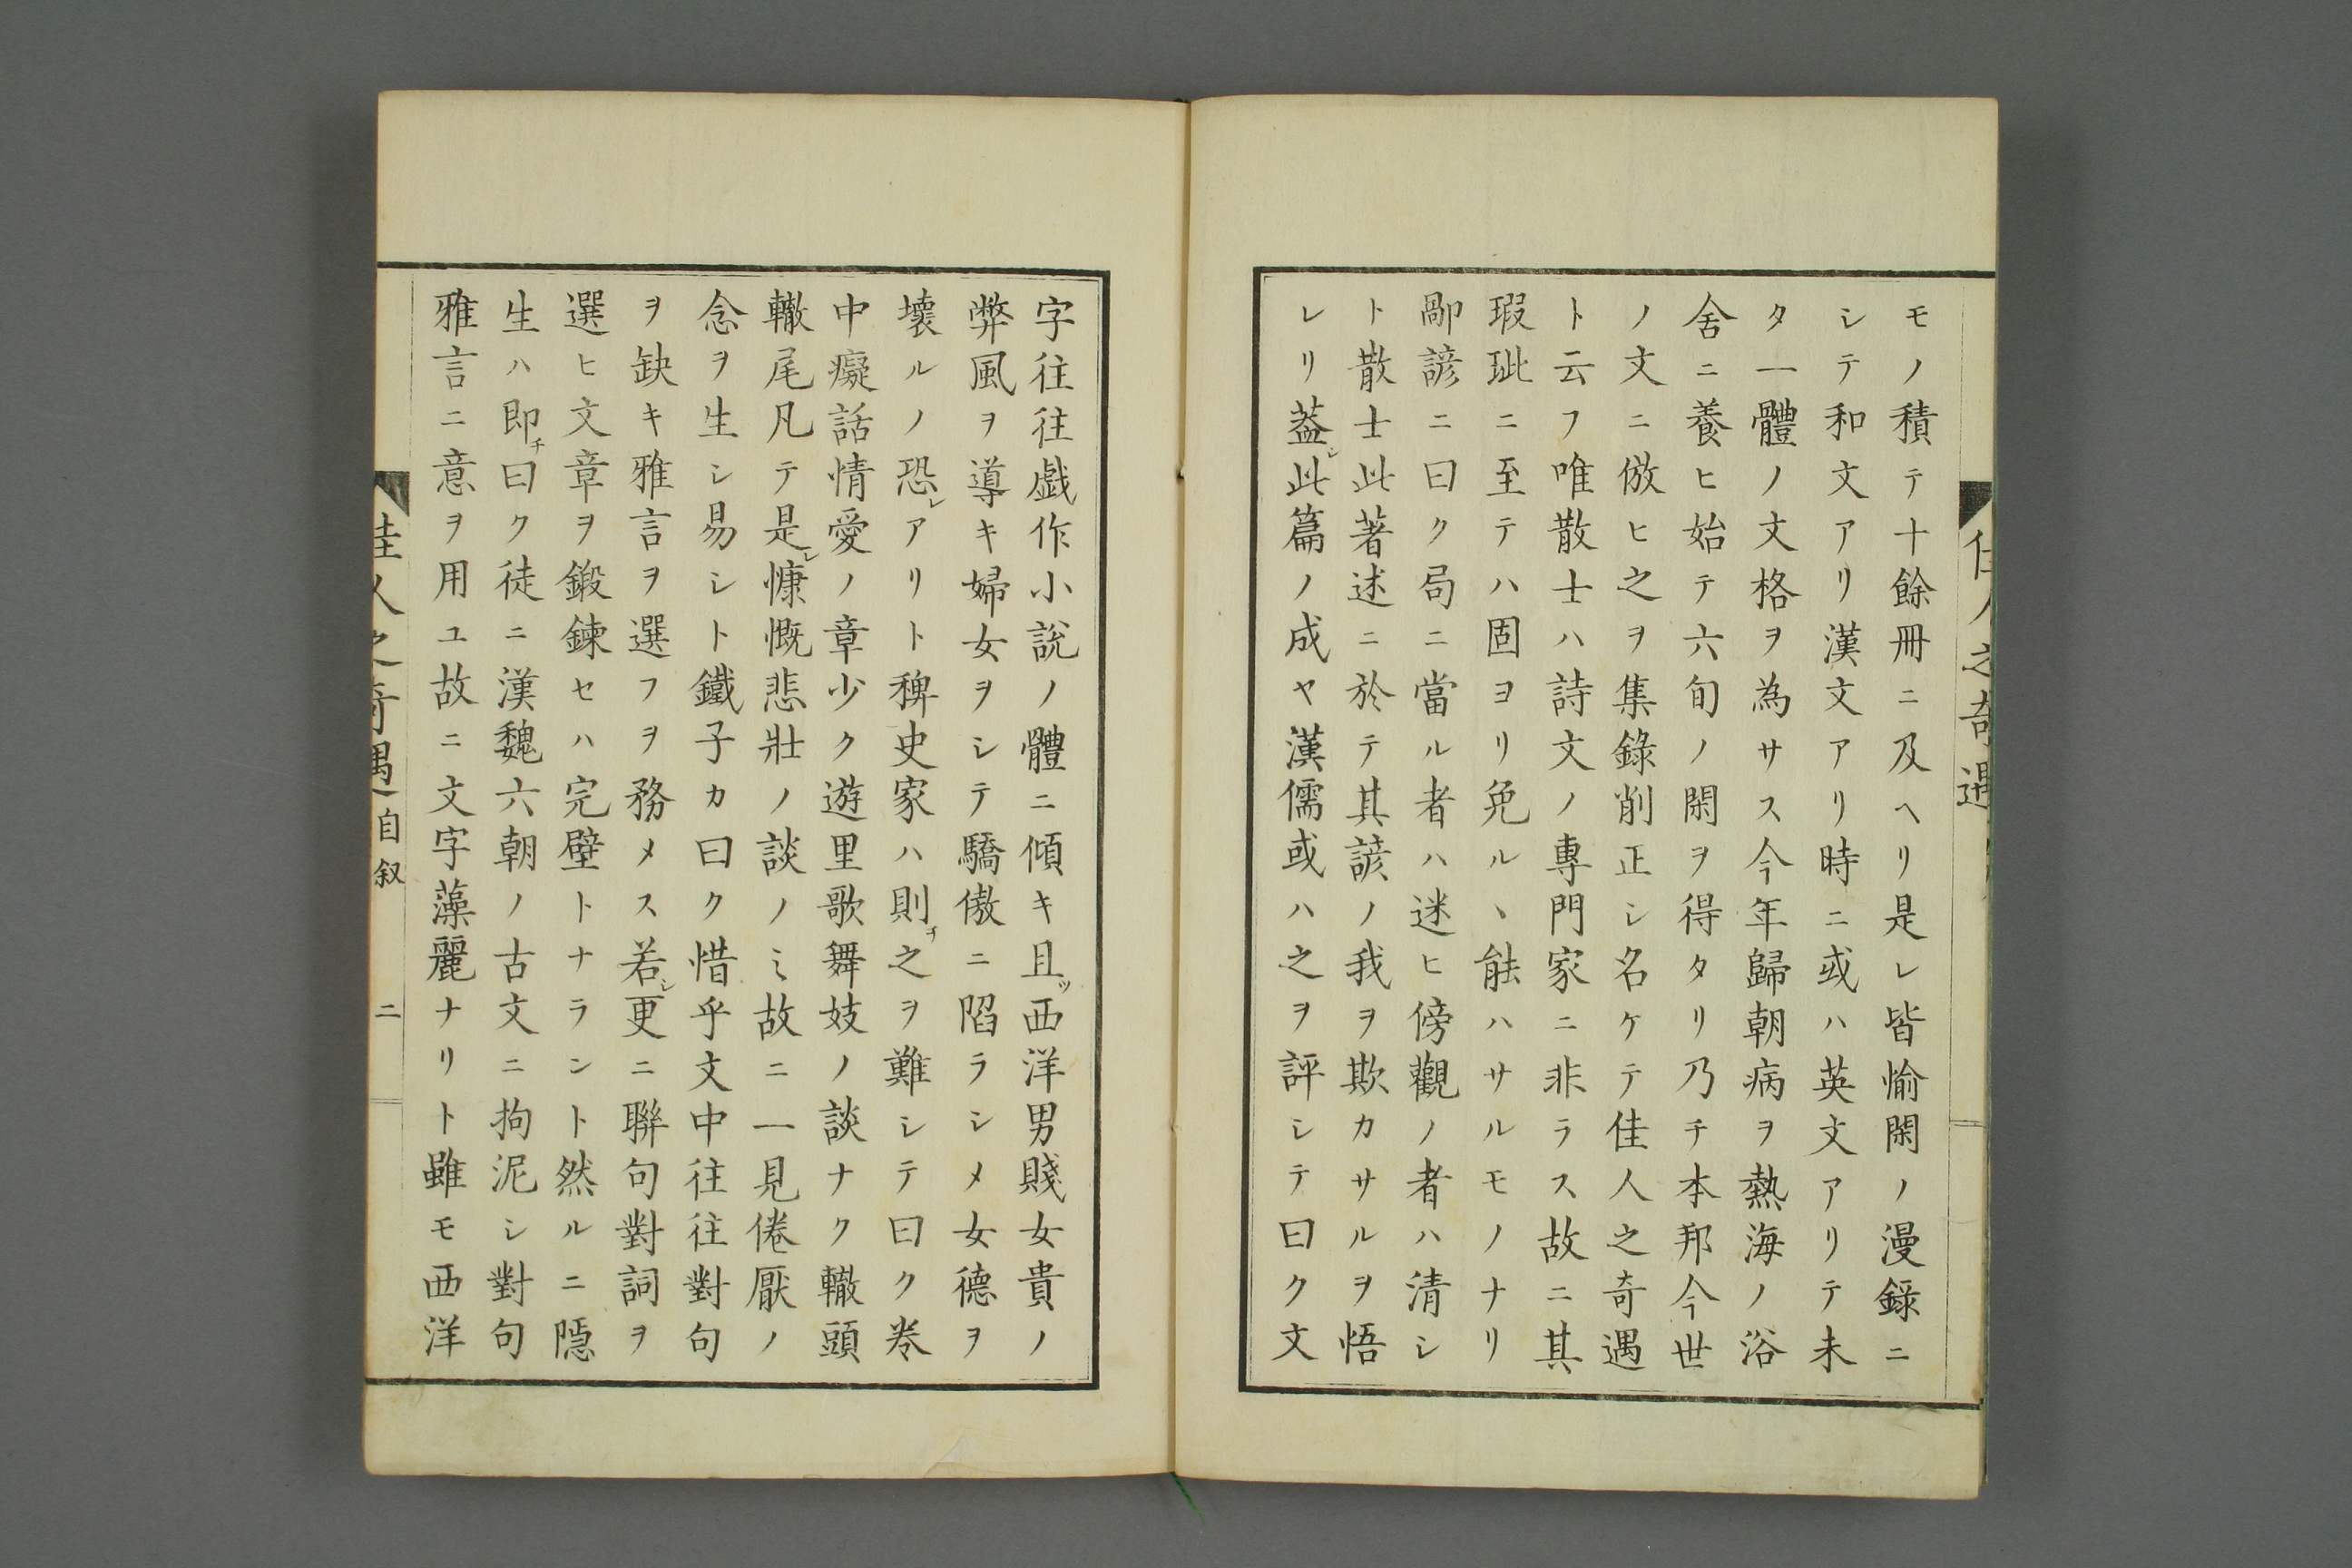 モノ積テ十餘冊ニ及ヘリ是レ皆愉閑ノ漫錄ニ
シテ和文アリ漢文アリ時ニ或ハ英文アリテ未
タ一體ノ文格ヲ為サス今年歸朝病ヲ熱海ノ浴
舍ニ養ヒ始テ六旬ノ閑ヲ得タリ乃チ本邦今世
ノ文ニ倣ヒ之ヲ集錄削正シ名ケテ佳人之奇遇
ト云フ唯散士ハ詩文ノ專門家ニ非ラス故ニ其
瑕玼ニ至テハ固ヨリ免ルヽ能ハサルモノナリ
鄙諺ニ曰ク局ニ當ル者ハ迷ヒ傍觀ノ者ハ清シ
ト散士此著述ニ於テ其諺ノ我ヲ欺カサルヲ悟
レリ蓋シ此篇ノ成ヤ漢儒或ハ之ヲ評シテ曰ク文
字往往戯作小説ノ體ニ傾キ且ツ西洋男賤女貴ノ
弊風ヲ導キ婦女ヲシテ驕傲ニ陷ラシメ女德ヲ
壞ルノ恐レアリト稗史家ハ則チ之ヲ難シテ曰ク卷
中癡話情愛ノ章少ク遊里歌舞妓ノ談ナク轍頭
轍尾凡テ是レ慷慨悲壯ノ談ノミ故ニ一見倦厭ノ
念ヲ生シ易シト鐵子カ曰ク惜乎文中往往對句
ヲ缺キ雅言ヲ選フヲ務メス若シ更ニ聯句對詞ヲ
選ヒ文章ヲ鍛鍊セハ完壁トナラント然ルニ隱
生ハ即チ曰ク徒ニ漢魏六朝ノ古文ニ拘泥シ對句
雅言ニ意ヲ用ユ故ニ文字藻麗ナリト雖モ西洋
佳人之奇遇 自叙 二